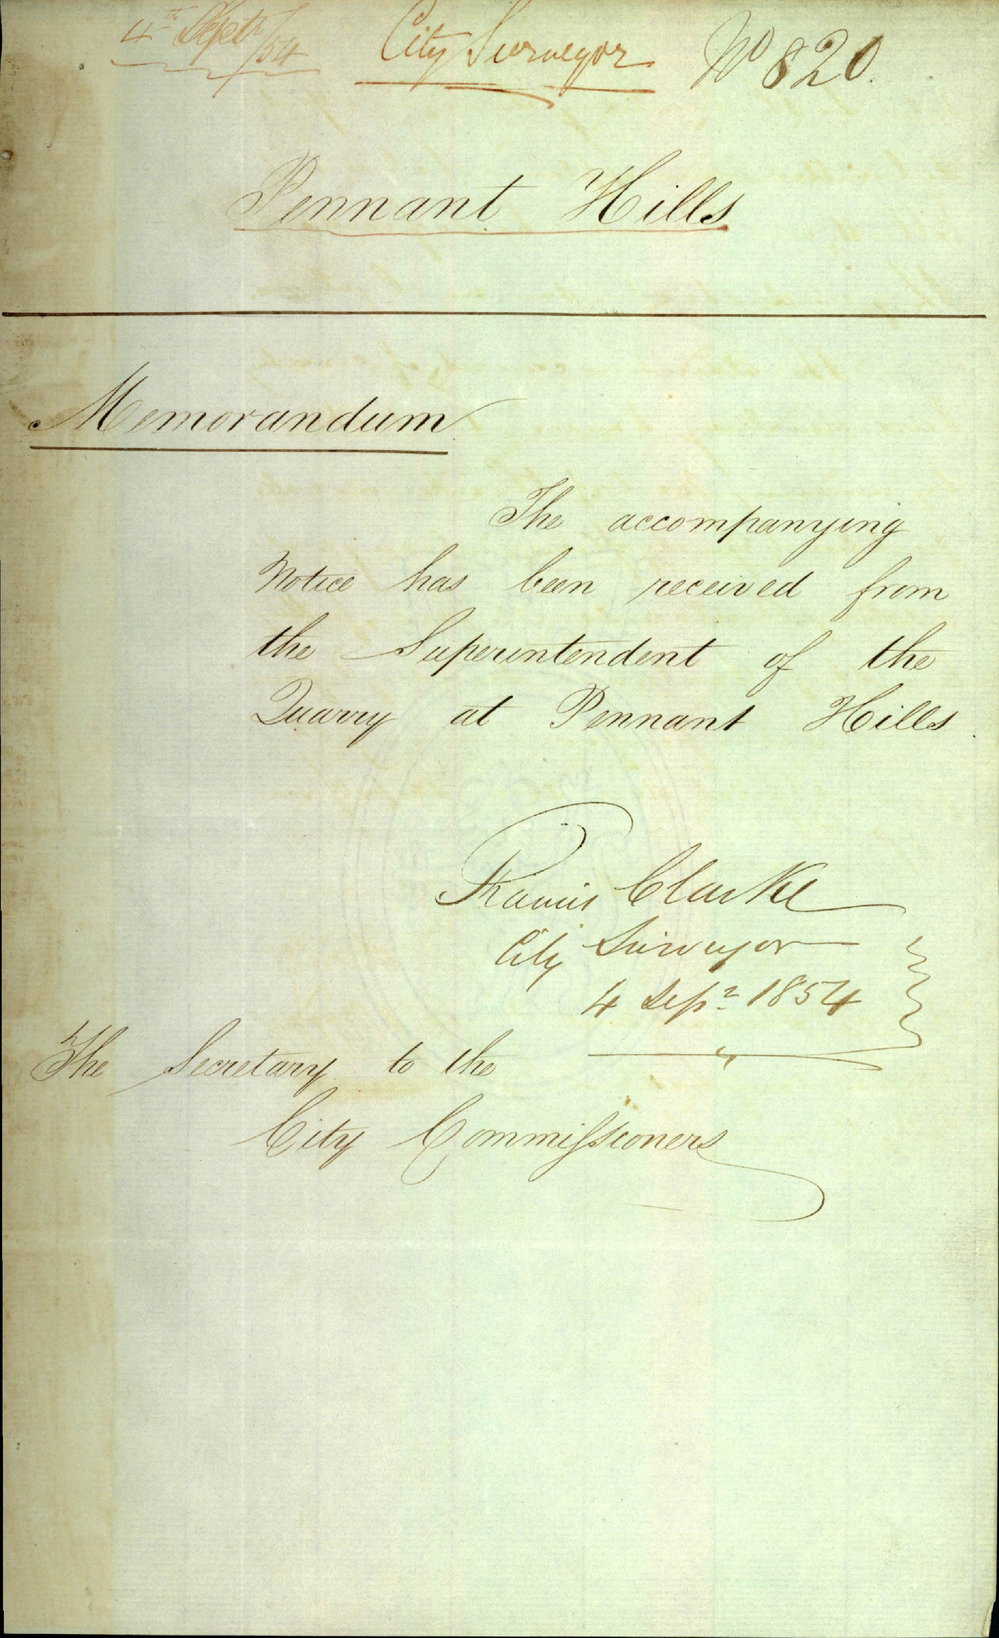 4th Sept/54 City Surveyor No 820.
Pennant Hills
Memorandum
The accompanying
Notice has been received from
the Superintendent of the
Quarry at Pennant Hills.
Francis Clarke
City Surveyor
4 Sepr 1854
The Secretary to the
City Commissioners